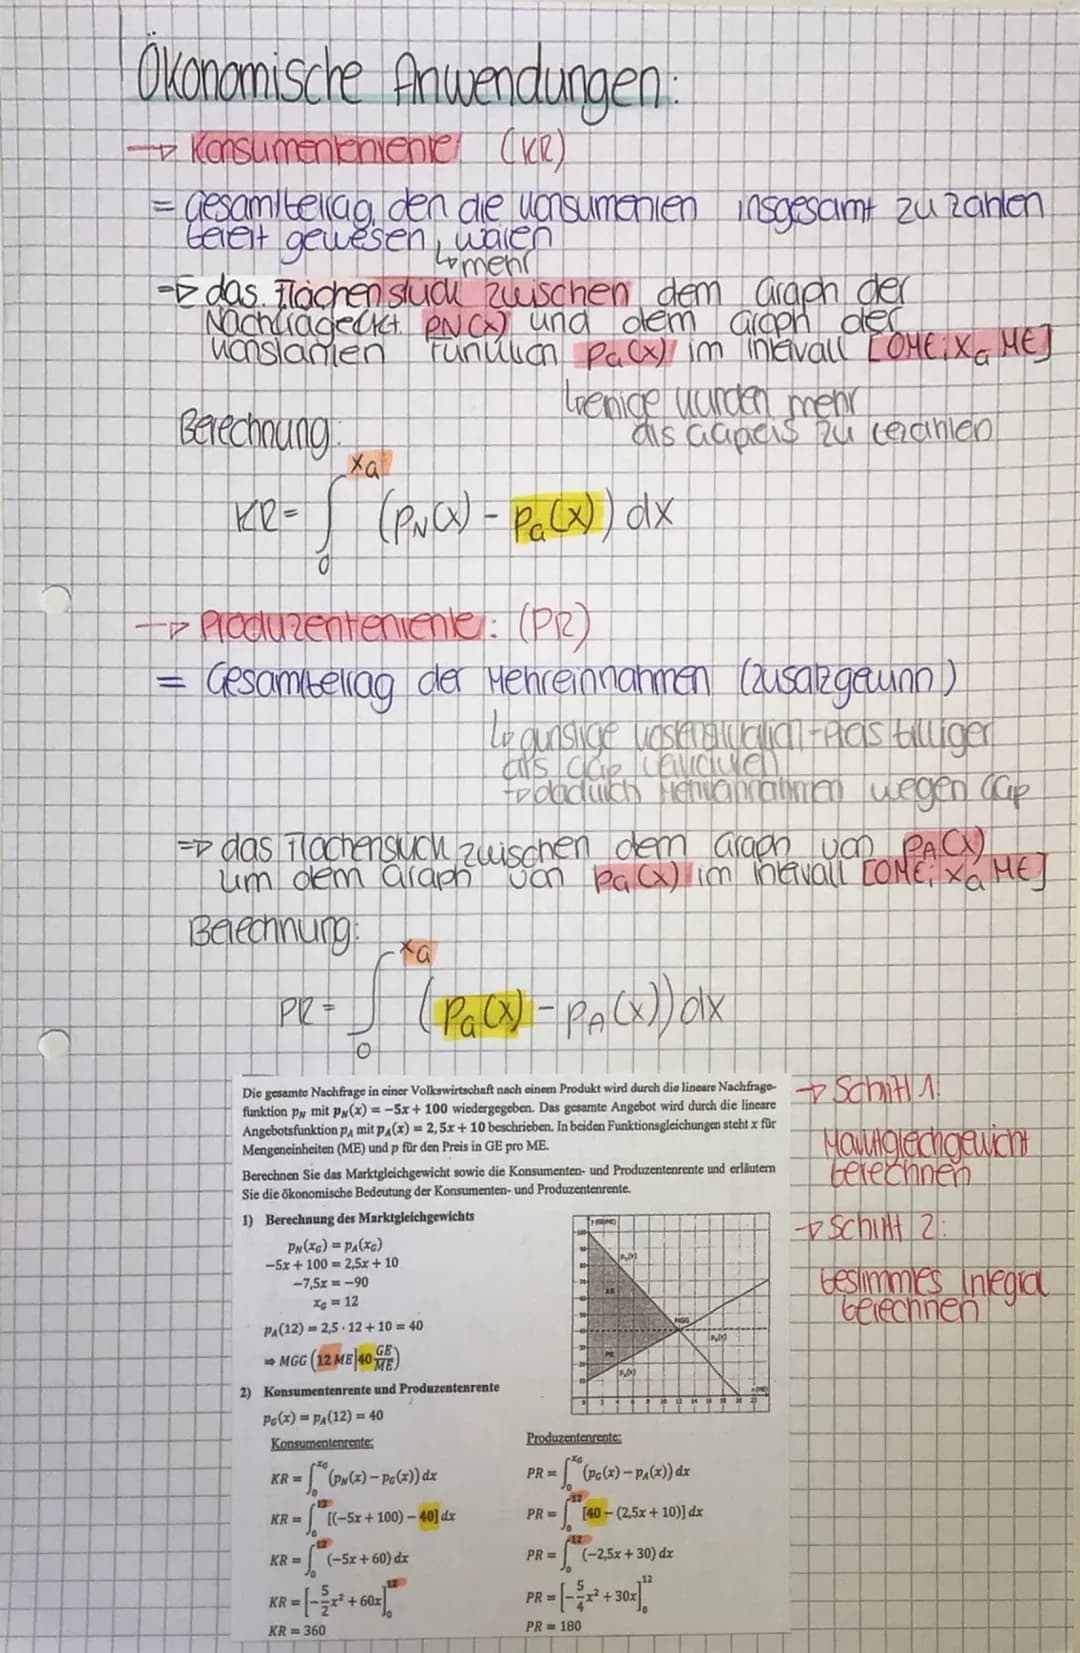 Ökonomische Anwendungen:
→ Konsumentenrente (KR)
= Gesamtbetrag, den die Konsumenten insgesamt zu zahlen
bereit gewesen wären
↳ mehr
=> das Flächenstück zwischen dem Graph der
Nachfragefkt. PN(x) und dem Graph der
konstanten Funktion PG(x) im Intervall [0ME; XG ME]
als zu bezahlen
Berechnung:
KR = ∫₀^xG (PN(x) - PG(x)) dx
→ Produzentenrente: (PR)
= Gesamtbetrag der Mehreinnahmen (Zusatzgewinn)
↳ günstige billiger
als
dadurch Mehreinnahmen wegen GGP
=> das Flächenstück zwischen dem Graph von PA(x)
um dem Graph von PG(x) im Intervall [0ME; XG ME]
Berechnung:
PR = ∫₀^xG (PG(x) - PA(x)) dx
Die gesamte Nachfrage in einer Volkswirtschaft nach einem Produkt wird durch die lineare Nachfrage-
funktion pN mit pN(x) = −5x + 100 wiedergegeben. Das gesamte Angebot wird durch die lineare
Angebotsfunktion pA mit pA(x) = 2,5x + 10 beschrieben. In beiden Funktionsgleichungen steht x für
Mengeneinheiten (ME) und p für den Preis in GE pro ME.
Berechnen Sie das Marktgleichgewicht sowie die Konsumenten- und Produzentenrente und erläutern
Sie die ökonomische Bedeutung der Konsumenten- und Produzentenrente.
→ Schritt 1:
Marktgleichgewicht
berechnen
→ Schritt 2:
bestimmtes Integral
berechnen
1) Berechnung des Marktgleichgewichts
pN(xG) = pA(xG)
−5x + 100 = 2,5x + 10
−7,5x = −90
xG = 12
pA(12) = 2,5 · 12 + 10 = 40
⇒ MGG (12 ME|40 GE/ME)
KR
PR
MGG
2) Konsumentenrente und Produzentenrente
pG(x) = pA(12) = 40
Konsumentenrente:
KR = ∫₀^xG (pN(x) − pG(x)) dx
KR = ∫₀^12 [(−5x + 100) − 40] dx
KR = ∫₀^12 (−5x + 60) dx
KR = [−5/2 x² + 60x]₀^12
KR = 360
Produzentenrente:
PR = ∫₀^xG (pG(x) − pA(x)) dx
PR = ∫₀^12 [40 − (2,5x + 10)] dx
PR = ∫₀^12 (−2,5x + 30) dx
PR = [−5/4 x² + 30x]₀^12
PR = 180